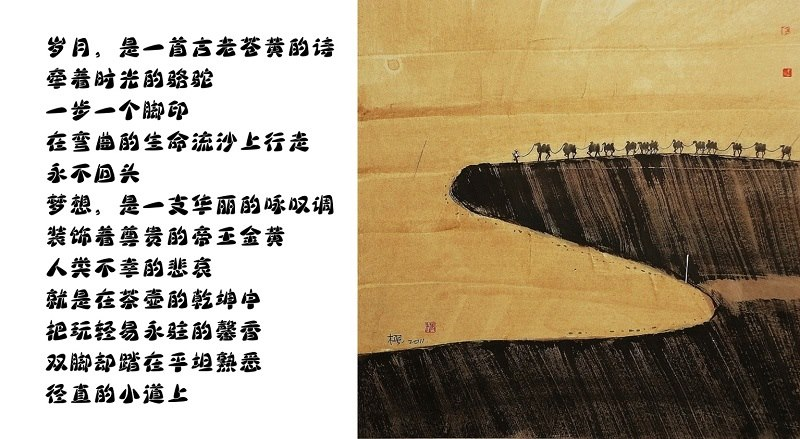 岁月，是一首古老苍黄的诗
牵着时光的骆驼
一步一个脚印
在弯曲的生命流沙上行走
永不回头
梦想，是一支华丽的咏叹调
装饰着尊贵的帝王金黄
人类不幸的悲哀
就是在茶壶的乾坤中
把玩轻易永驻的馨香
双脚却踏在平坦熟悉
径直的小道上
2011